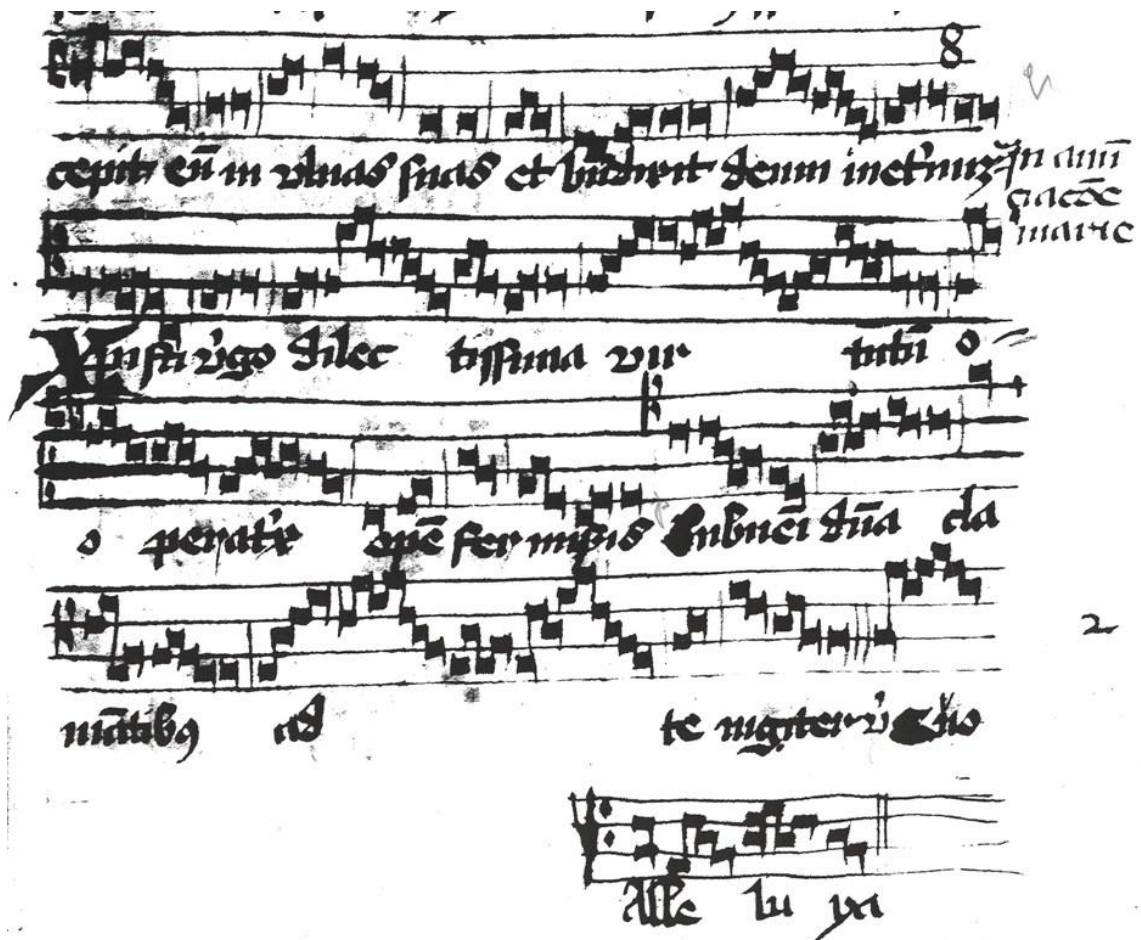 cepit eū in vlnas suas et bndixit deum in et'nuz In anū
ciacōe
marie
Xpisti v'go dilec tissima vir tutū o
o perat'x opē fer mis'is subueni dn̄a cla
mātibꝰ ad te iugiter v̓ Qūo
Alle lu ya